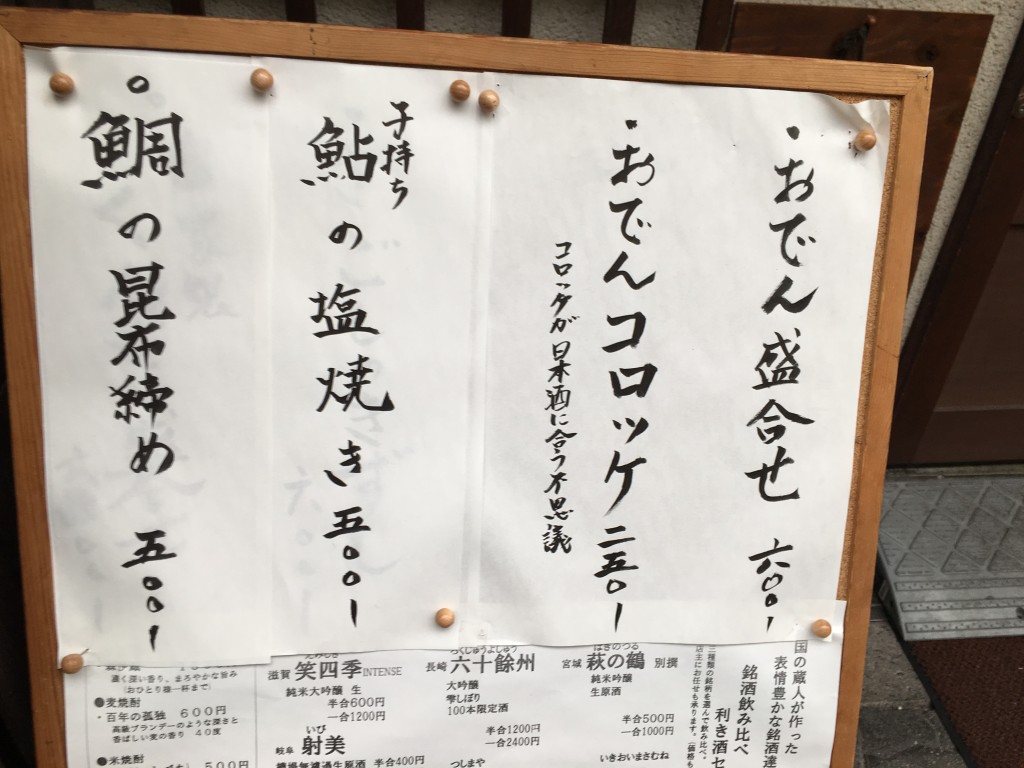 ・おでん盛合せ 六〇〇ー
・おでんコロッケ 二五〇ー
コロッケが日本酒に合う不思議
子持ち
鮎の塩焼き 五〇〇ー
。鯛の昆布締め 五〇〇ー
国の蔵人が作った
表情豊かな銘酒達
銘酒飲み比べ
利き酒セ
三種類の銘柄を選んで飲み比べ。
店主にお任せも承ります。(価格も
はぎのつる
宮城 萩の鶴 別撰
純米吟醸
生原酒
半合500円
一合1000円
いきおいまさむね
ろくじゅうよしゅう
長崎 六十餘州
大吟醸
雫しぼり
100本限定酒
半合1200円
一合2400円
つしまや
えみしき
滋賀 笑四季 INTENSE
純米大吟醸 生
半合600円
一合1200円
いび
岐阜 射美
槽場無濾過生原酒 半合400円
濃く深い香り。まろやかな旨み
(おひとり様一杯まで)
●麦焼酎
・百年の孤独 600円
高級ブランデーのような深さと
香ばしい麦の香り 40度
●米焼酎
500円